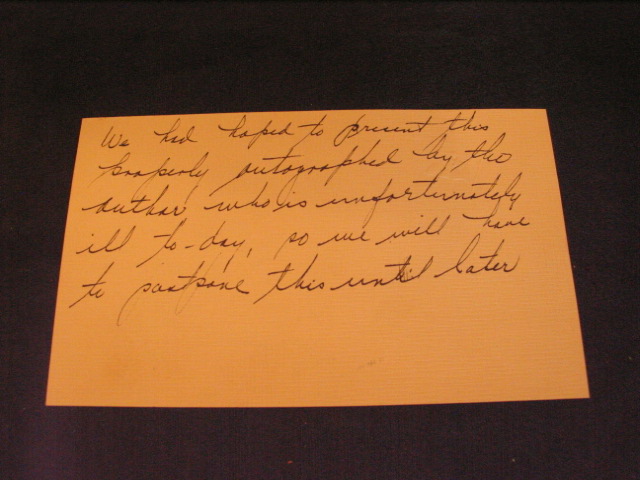 We had hoped to present this
properly autographed by the
author, who is unfortunately
ill to-day, so we will have
to postpone this until later